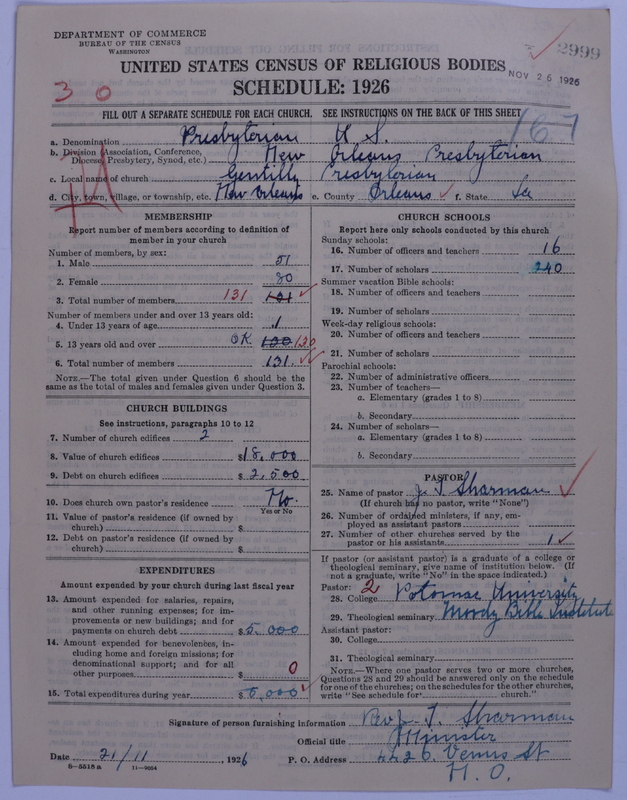 DEPARTMENT OF COMMERCE
BUREAU OF THE CENSUS
WASHINGTON
2999
UNITED STATES CENSUS OF RELIGIOUS BODIES
NOV 26 1926
SCHEDULE: 1926
3 0
FILL OUT A SEPARATE SCHEDULE FOR EACH CHURCH. SEE INSTRUCTIONS ON THE BACK OF THIS SHEET
167
a. Denomination Presbyterian U S.
b. Division (Association, Conference, Diocese, Presbytery, Synod, etc.) New Orleans Presbyterian
c. Local name of church Gentilly Presbyterian
d. City, town, village, or township, etc. New Orleans e. County Orleans f. State La
MEMBERSHIP
Report number of members according to definition of
member in your church
Number of members, by sex:
1. Male 51
2. Female 80
3. Total number of members 131
Number of members under and over 13 years old:
4. Under 13 years of age 1
5. 13 years old and over OK 130
6. Total number of members 131
NOTE.—The total given under Question 6 should be the
same as the total of males and females given under Question 3.
CHURCH BUILDINGS
See instructions, paragraphs 10 to 12
7. Number of church edifices 2
8. Value of church edifices $18,000
9. Debt on church edifices $2,500
10. Does church own pastor's residence No.
Yes or No
11. Value of pastor's residence (if owned by
church) $
12. Debt on pastor's residence (if owned by
church) $
EXPENDITURES
Amount expended by your church during last fiscal year
13. Amount expended for salaries, repairs,
and other running expenses; for im-
provements or new buildings; and for
payments on church debt $5.000
14. Amount expended for benevolences, in-
cluding home and foreign missions; for
denominational support; and for all
other purposes $ 0
15. Total expenditures during year $5,000
CHURCH SCHOOLS
Report here only schools conducted by this church
Sunday schools:
16. Number of officers and teachers 16
17. Number of scholars 240
Summer vacation Bible schools:
18. Number of officers and teachers
19. Number of scholars
Week-day religious schools:
20. Number of officers and teachers
21. Number of scholars
Parochial schools:
22. Number of administrative officers
23. Number of teachers—
a. Elementary (grades 1 to 8)
b. Secondary
24. Number of scholars—
a. Elementary (grades 1 to 8)
b. Secondary
PASTOR
25. Name of pastor J. T. Sharman
(If church has no pastor, write "None")
26. Number of ordained ministers, if any, em-
ployed as assistant pastors
27. Number of other churches served by the
pastor or his assistants 1
If pastor (or assistant pastor) is a graduate of a college or
theological seminary, give name of institution below. (If
not a graduate, write "No" in the space indicated.)
Pastor: 2
28. College Potomac University
29. Theological seminary Moody Bible Institute
Assistant pastor:
30. College
31. Theological seminary
NOTE.—Where one pastor serves two or more churches,
Questions 28 and 29 should be answered only on the schedule
for one of the churches; on the schedules for the other churches,
write "See schedule for church."
Signature of person furnishing information Rev J. T. Sharman
Official title Minister
Date 21/11, 1926 P. O. Address 4426 Venus St
N. O.
8-5518a 11-9054